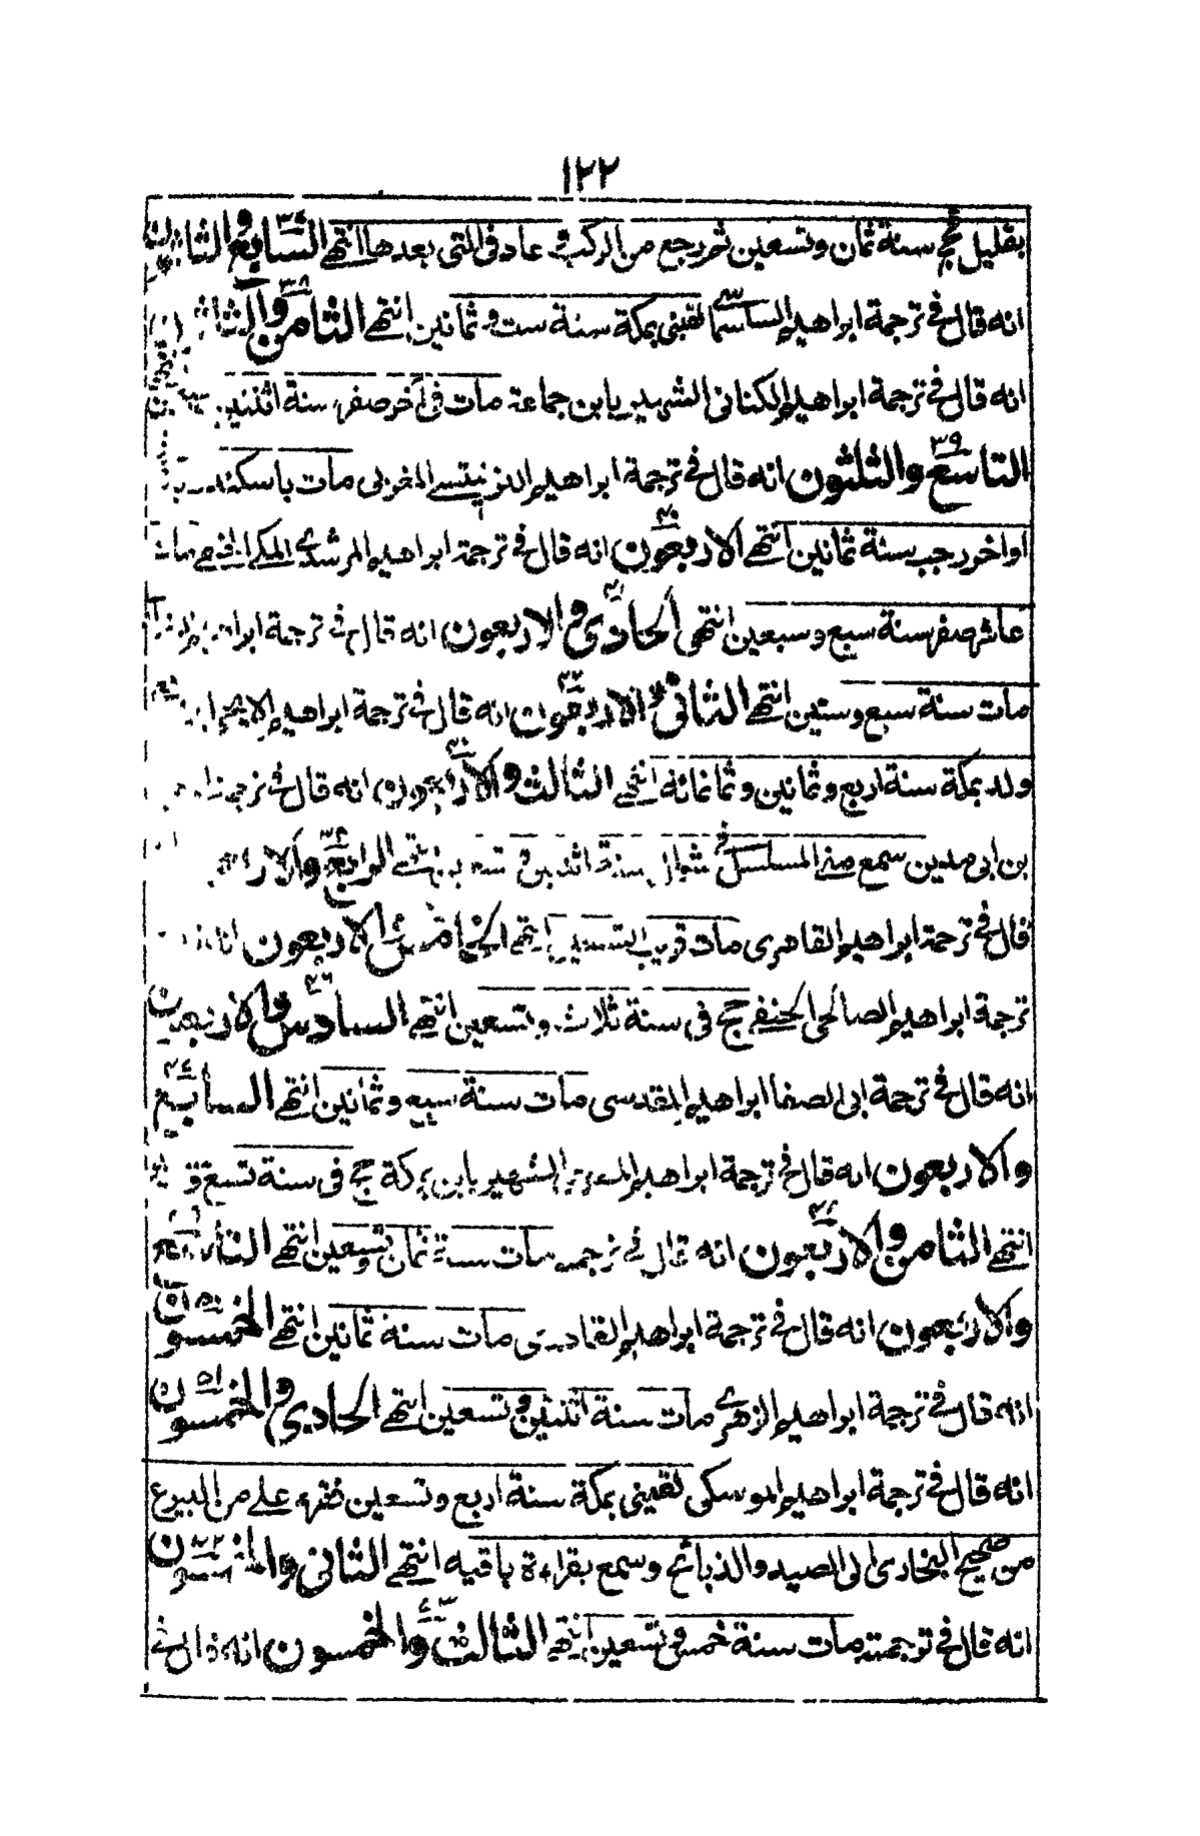 ١٢٢
بقليل حج سنة ثمان وتسعين ثم رجع من الركب وعاد فى التى بعدها انتهى السابع والثلثون
انه قال فى ترجمة ابراهيم لقينى بمكة سنة ست وثمانين انتهى الثامن والثلثون ٣٨
انه قال فى ترجمة ابراهيم الكنانى الشهير بابن جماعة مات فى آخر صفر سنة اثنتين
التاسع والثلثون ٣٩ انه قال فى ترجمة ابراهيم المغربى مات باسكندرية
اواخر رجب سنة ثمانين انتهى الاربعون ٤٠ انه قال فى ترجمة ابراهيم المرشدى المكى الحنفى مات
عاشر صفر سنة سبع وسبعين انتهى الحادى والاربعون انه قال فى ترجمة
مات سنة سبع وستين انتهى الثانى والاربعون انه قال فى ترجمة ابراهيم
ولد بمكة سنة اربع وثمانين وثمانمائة انتهى الثالث والاربعون انه قال فى ترجمة
بن ابى مدين سمع منى المسلسل فى شوال سنة اثنين انتهى الرابع والاربعون
قال فى ترجمة ابراهيم القاهرى مات قريب التسعين انتهى الخامس والاربعون انه
ترجمة ابراهيم الصالحى الحنفى حج فى سنة ثلاث وتسعين انتهى السادس والاربعون ٤٦
انه قال فى ترجمة ابى الصفا ابراهيم المقدسى مات سنة سبع وثمانين انتهى السابع
والاربعون انه قال فى ترجمة ابراهيم الشهير بابن بركة حج فى سنة تسع
انتهى الثامن والاربعون انه قال فى ترجمة مات سنة ثمان وتسعين انتهى التاسع
والاربعون انه قال فى ترجمة ابراهيم القادرى مات سنة ثمانين انتهى الخمسون
انه قال فى ترجمة ابراهيم الزهرى مات سنة اثنتين وتسعين انتهى الحادى والخمسون ٥١
انه قال فى ترجمة ابراهيم الموسكى لقينى بمكة سنة اربع وتسعين فقرء على من البيوع
من صحيح البخارى الى الصيد والذبائح وسمع بقراءة باقيه انتهى الثانى والخمسون
انه قال فى ترجمته مات سنة خمس وتسعين انتهى الثالث والخمسون انه قال فى